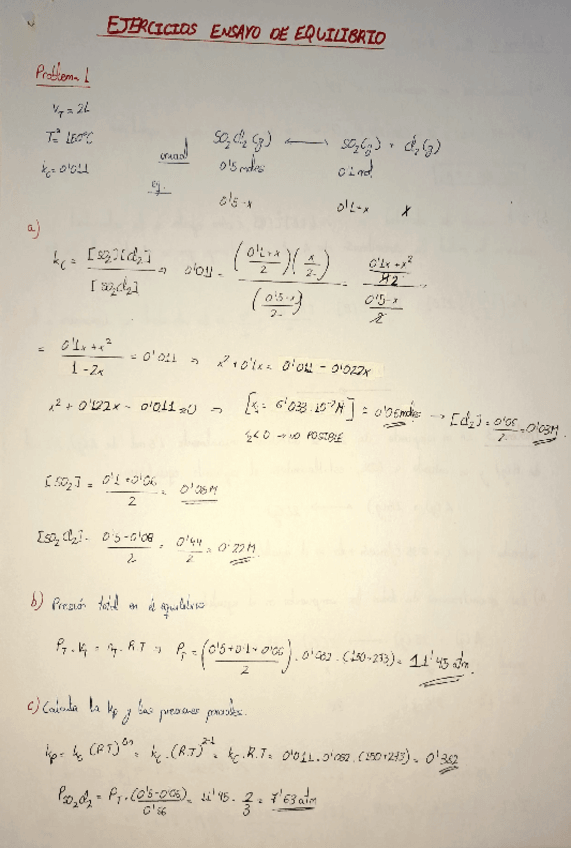 EJERCICIOS ENSAYO DE EQUILIBRIO
Problema 1
V_T = 2L
Tª = 150ºC
k_c = 0'011
inicial
eq.
SO₂Cl₂(g) ⟷ SO₂(g) + Cl₂(g)
0'5 moles 0'1 mol
0'5-x 0'1+x x
a)
k_c = [SO₂][Cl₂] / [SO₂Cl₂] ⇒ 0'011 = ((0'1+x)/2)(x/2) / ((0'5-x)/2) = ((0'1x + x²)/42) / ((0'5-x)/2)
= (0'1x + x²) / (1-2x) = 0'011 ⇒ x² + 0'1x = 0'011 - 0'022x
x² + 0'122x - 0'011 = 0 ⇒ [x₁ = 6'038·10⁻² M] = 0'06 moles → [Cl₂] = 0'06/2 = 0'03M
x₂<0 → NO POSIBLE
[SO₂] = (0'1 + 0'06)/2 = 0'08M
[SO₂Cl₂] = (0'5-0'06)/2 = 0'44/2 = 0'22M
b) Presión total en el equilibrio
P_T · V_T = n_T · R.T ⇒ P_T = ((0'5+0'1+0'06)/2) · 0'082 · (150+273) = 11'45 atm
c) Calcula la Kp y las presiones parciales.
kp = k_c (R.T)^Δn = k_c · (R.T)²⁻¹ = k_c · R.T = 0'011 · 0'082 · (150+273) = 0'382
P_SO₂Cl₂ = P_T · (0'5-0'06)/0'66 = 11'45 · 2/3 = 7'63 atm